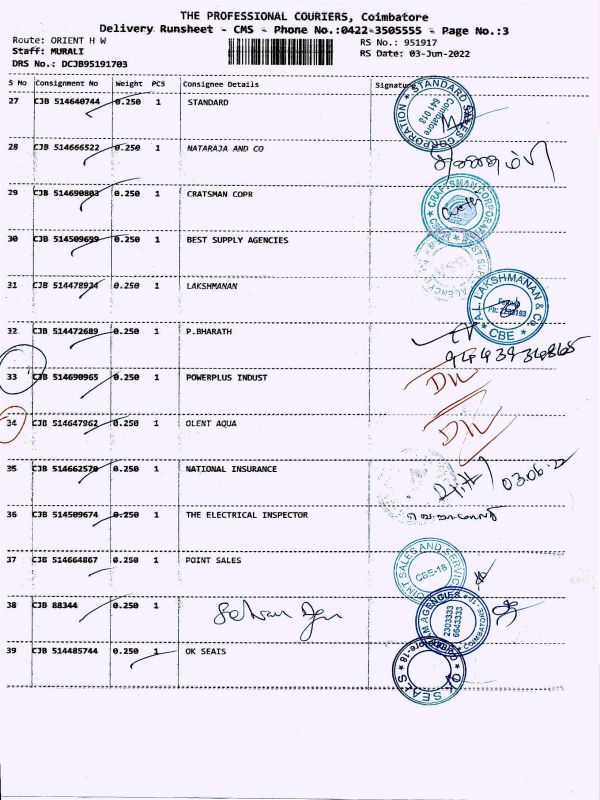 THE PROFESSIONAL COURIERS, Coimbatore
Delivery Runsheet - CMS - Phone No.:0422-3505555 - Page No.:3
Route: ORIENT H W RS No.: 951917
Staff: MURALI RS Date: 03-Jun-2022
DRS No.: DCJB95191703
S No Consignment No Weight PCS Consignee Details Signature
27 CJB 514640744 0.250 1 STANDARD
STANDARD SALES CORPORATION Coimbatore 641 018
28 CJB 514666522 0.250 1 NATARAJA AND CO
29 CJB 514690803 0.250 1 CRATSMAN COPR
CRAFTSMAN CORPORATION
30 CJB 514509699 0.250 1 BEST SUPPLY AGENCIES
BEST SUPPLY AGENCY
31 CJB 514478924 0.250 1 LAKSHMANAN
AL. LAKSHMANAN & Co. CBE
32 CJB 514472689 0.250 1 P.BHARATH
33 CJB 514690965 0.250 1 POWERPLUS INDUST
34 CJB 514647962 0.250 1 OLENT AQUA
35 CJB 514662570 0.250 1 NATIONAL INSURANCE
03.06.22
36 CJB 514509674 0.250 1 THE ELECTRICAL INSPECTOR
37 CJB 514664867 0.250 1 POINT SALES
POINT SALES AND SERVICE CBE-18
38 CJB 88344 0.250 1
AGENCIES 2303333 6643333 COIMBATORE-18
39 CJB 514485744 0.250 1 OK SEAIS
OK SEALS